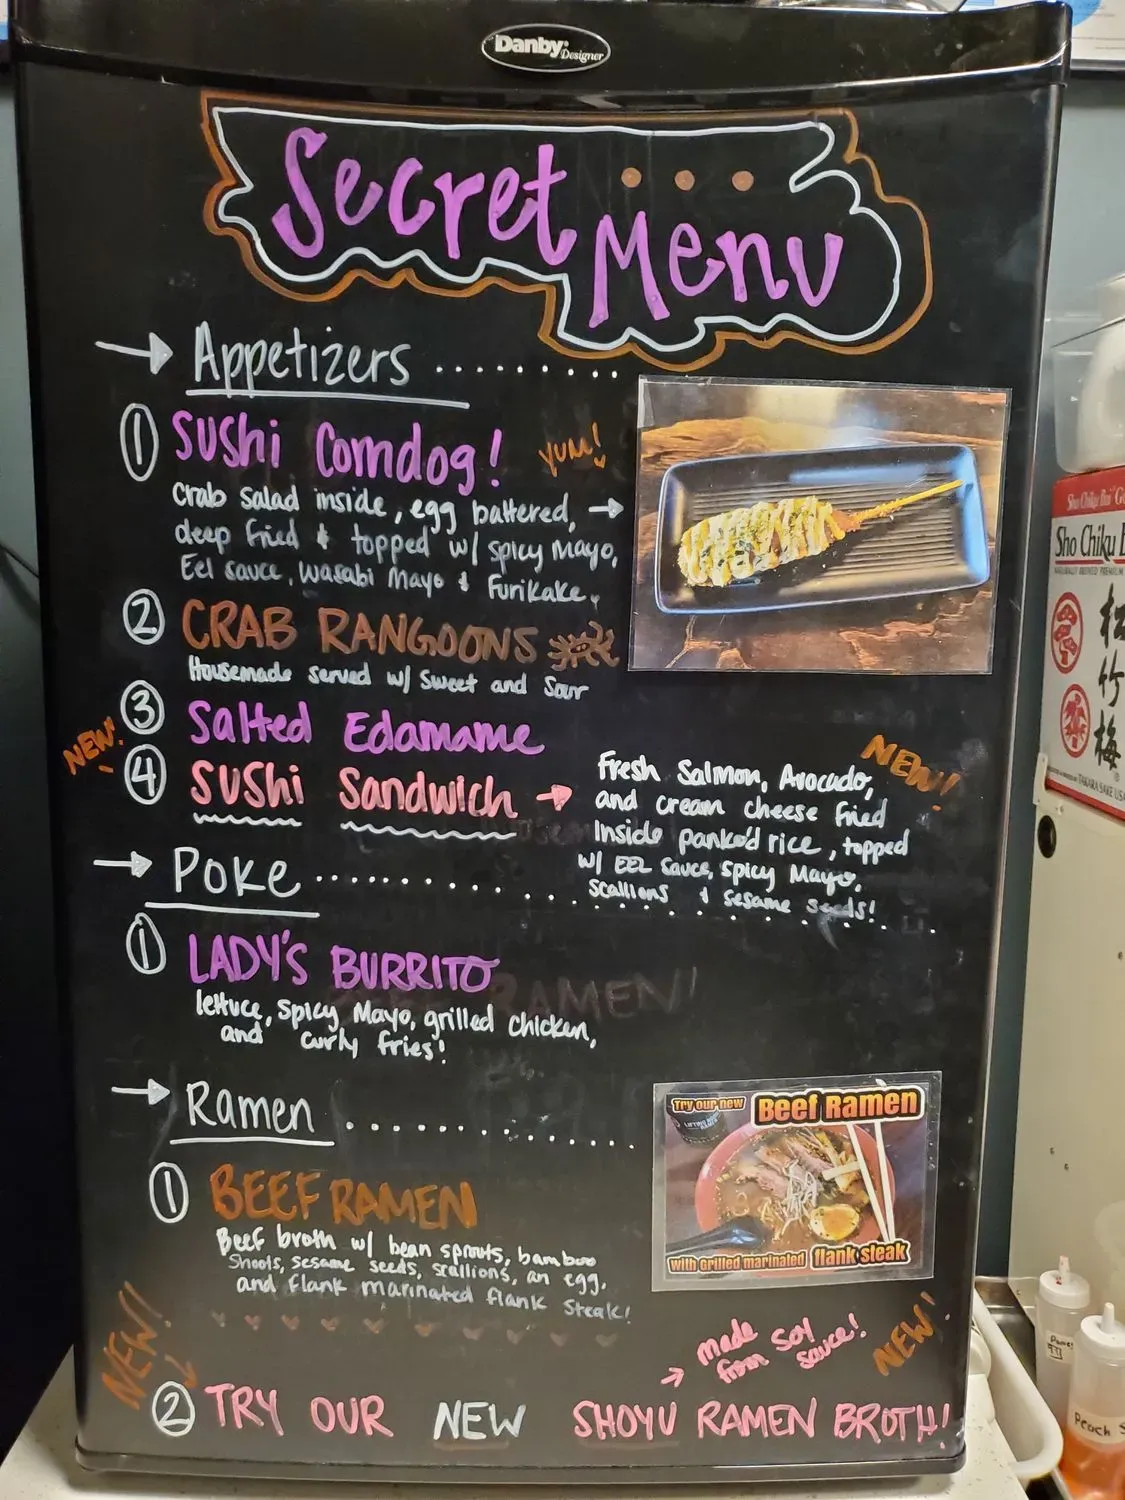 Danby
Designer
Secret
Menu
Appetizers
1 Sushi Corndog! YUM!
Crab salad inside, egg battered,
deep fried & topped w/ spicy Mayo,
Eel sauce, Wasabi Mayo & Furikake.
2 CRAB RANGOONS
Housemade served w/ sweet and sour
3 Salted Edamame
NEW!
4 Sushi Sandwich
NEW!
Fresh Salmon, Avocado,
and cream cheese fried
Inside panko'd rice, topped
w/ EEL Sauce, Spicy Mayo,
scallions & sesame seeds!
POKE
1 LADY'S BURRITO
lettuce, spicy Mayo, grilled chicken,
and curly fries!
RAMEN!
Ramen
Try our new Beef Ramen
with Grilled marinated flank steak
1 BEEF RAMEN
Beef broth w/ bean sprouts, bamboo
Shoots, sesame seeds, scallions, an egg,
and flank marinated flank steak!
NEW!
made
from SOY
sauce!
NEW!
2 TRY OUR NEW SHOYU RAMEN BROTH!
Sho Chiku
TAKARA SAKE USA
松
竹
梅
Peach